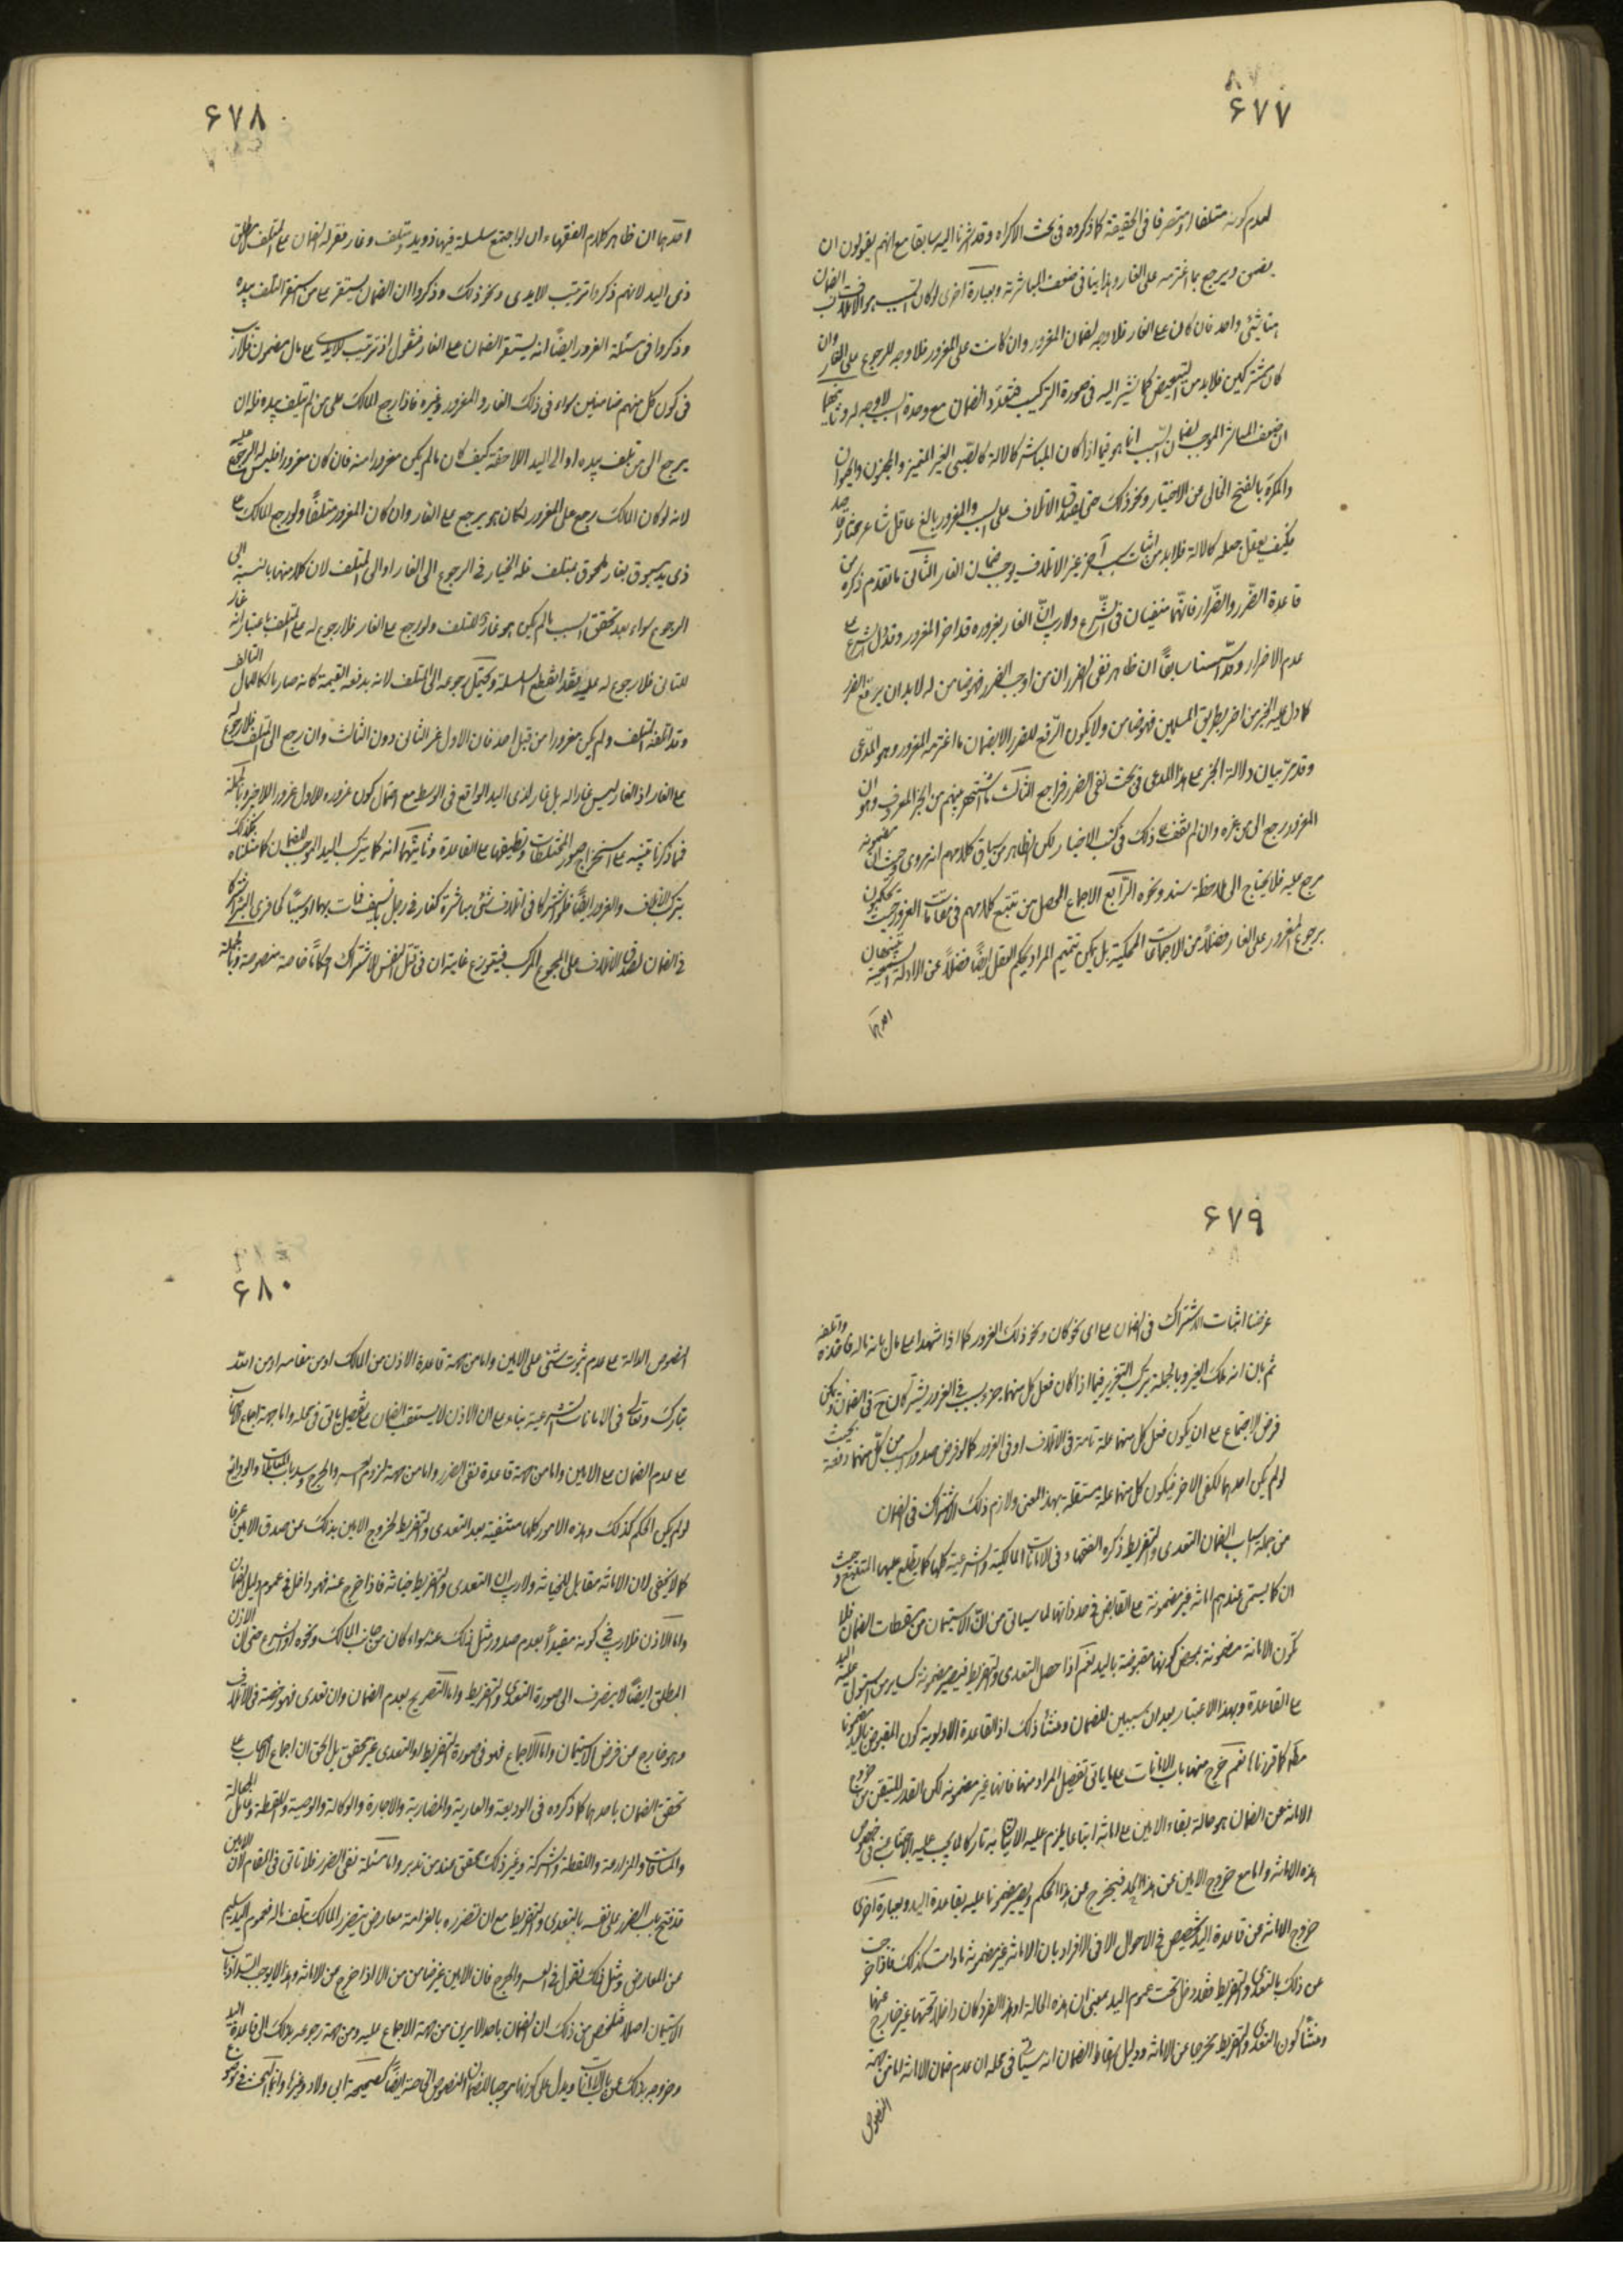 ۶۷۷
لعدم كونه متلفا او متصرفا فى الحقيقة كما ذكروه فى بحث الاكراه وقد اشرنا اليه سابقا مع انهم يقولون ان
يضمن ويرجع بما اغترمه على الغار وهذا ينافى ضعف المباشرة وبعبارة اخرى لو كان السبب هو الاتلاف فالضمان
هنا شئ واحد فان كان على الغار فلا وجه لضمان المغرور وان كانت على المغرور فلا وجه للرجوع على الغار وان
كان مشتركين فلا بد من التبعيض كما نشير اليه فى صورة التركيب فتعدد الضمان مع وحدة السبب لا وجه له وثانيهما
ان ضعف المباشر الموجب لضمان السبب انما هو فيما اذا كان المباشر كالالة كالصبى الغير المميز والمجنون والحيوان
والمكره بالفتح الخالى عن الاختيار ونحو ذلك حتى يصدق الاتلاف على السبب والمغرور بالغ عاقل شاعر مختار قاصد
فكيف يعقل جعله كالالة فلا بد من اثبات سبب آخر غير الاتلاف يوجب ضمان الغار الثالث ما تقدم ذكره من
قاعدة الضرر والضرار فانهما منفيان فى الشرع ولا ريب ان الغار بغروره قد اضر المغرور وقد دل الشرع على
عدم الاضرار وقد اسسنا سابقا ان ظاهر نفى الضرر ان من اوجب الضرر فهو ضامن له لا بد ان يرفع الضرر
كما دل عليه الخبر من اضر بطريق المسلمين فهو ضامن ولا يكون الرفع للضرر الا بضمان ما اغترمه المغرور وهو المدعى
وقد مر بيان دلالة الخبر على هذا المدعى فى بحث نفى الضرر فراجع الثالث ما اشتهر بينهم من الخبر المعروف وهو ان
المغرور يرجع الى من غره وان لم نقف على ذلك فى كتب الاخبار لكن الظاهر من سياق كلامهم انه مروى وحيث ان مضمونه
مجمع عليه فلا يحتاج الى ملاحظة سند ونحوه الرابع الاجماع المحصل من تتبع كلامهم فى مقامات الغرور حيث يحكمون
برجوع المغرور على الغار فضلا عن الاجماعات المحكية بل يمكن تتميم المراد بحكم العقل ايضا فضلا عن الادلة السمعية تنبيهان
احدهما
۶۷۸
احدهما ان ظاهر كلام الفقهاء ان لو اجتمع سلسلة فيها ذو يد ومتلف وغار فقرار الضمان على المتلف مطلق
ذى اليد لانهم ذكروا ترتب الايدى ونحو ذلك وذكروا ان الضمان يستقر على من استقر التلف بيده
وذكروا فى مسئلة الغرور ايضا انه يستقر الضمان على الغار فنقول اذ ترتبت الايدى على مال مضمون فلا ريب
فى كون كل منهم ضامنين سواء فى ذلك الغار والمغرور وغيره فاذا رجع المالك على من لم يتلف بيده فله ان
يرجع الى من تلف بيده او الى اليد اللاحقة كيف كان ما لم يكن مغرورا منه فان كان مغرورا فليس له الرجوع عليه
لانه لو كان المالك رجع على المغرور لكان هو يرجع على الغار وان كان المغرور متلفا ولو رجع المالك على
ذى يد مسبوق بغار ملحوق بمتلف فله الخيار فى الرجوع الى الغار او الى المتلف لان كلا منهما بالنسبة الى
الرجوع سواء بعد تحقق السبب ما لم يكن هو غارا للمتلف ولو رجع على الغار فلا رجوع له على المتلف باعتبار انه غار
للثانى فلا رجوع له عليه فقد انقطع السلسلة ويحتمل رجوعه الى المتلف لانه بدفعه القيمة كانه صار مالكا للمال التالف
وقد اتلفه المتلف ولم يكن مغرورا من قبل احد فان الاول غر الثانى دون الثالث وان رجع الى المتلف فلا رجوع له
على الغار اذ الغار ليس غارا له بل غار لذى اليد الواقع فى الوسط مع احتمال كون غروره للاول غرورا للاخير وبالجملة
فما ذكرنا تنبيه على استخراج صور المختلطات وتطبيقها على القاعدة وثانيهما انه كما يتركب اليد الموجب للضمان كما مثلناه كذلك
يتركب الاتلاف والغرور ايضا فلو اشتركا فى اتلاف شئ مباشرة كغار فى رجل بالسيف فمات بهما او سببا كما فرى البئر اشتركا
فى الضمان لصدق الاتلاف على المجموع المركب فيتوزع غايته ان فى قتل النفس للاشتراك احكاما خاصة منصوصة وبالجملة
۶۷۹
غرضنا اثبات الاشتراك فى الضمان على اى نحو كان ونحو ذلك الغرور كما اذا شهدا على مال بانه ماله فاخذه واتلفه
ثم بان انه ملك الغير وبالجملة يتركب التغرير فيما اذا كان فعل كل منهما جزء سبب فى الغرور يشتركان ح فى الضمان ويمكن
فرض الاجتماع على ان يكون فعل كل منهما علة تامة فى الاتلاف او فى الغرور كما لو فرض صدور السبب من كل منهما دفعة بحيث
لو لم يكن احدهما لكفى الاخر فيكون كل منهما علة مستقلة بهذا المعنى ولازم ذلك الاشتراك فى الضمان
من جملة اسباب الضمان التعدى والتفريط ذكره الفقهاء فى الامانات المالكية والشرعية كلها كما يطلع عليها المتتبع وحيث
ان كما يسمى عندهم امانة غير مضمونة على القابض فى حد ذاتها لما سياتى من ان الاستيمان من مسقطات الضمان فلا
تكون الامانة مضمونة بمحض كونها مقبوضة باليد نعم اذا حصل التعدى والتفريط فيصير مضمونة كساير من استولى عليه اليد
على القاعدة وبهذا الاعتبار يعدان سببين للضمان ومنشأ ذلك اذ القاعدة الاولوية كون المقبوض باليد مضمونا
مطلقا كما قررنا نعم خرج منها باب الامانات على ما ياتى تفصيل المراد منها فانها غير مضمونة لكن القدر المتيقن من خروج
الامانة عن الضمان هو حالة بقاء الامين على امانة اتيانا بما يلزم عليه الاتيان به تاركا لما يجب عليه الاجتناب عنه فى خصوص
هذه الامانة واما مع خروج الامين عن هذا الحد فيخرج عن هذا الحكم ويصير مضمونا عليه بقاعدة اليد وبعبارة اخرى
خروج الامانة عن قاعدة اليد تخصيص فى الاحوال لا فى الافراد بان الامانة غير مضمونة ما دامت كذلك فاذا خرجت
عن ذلك بالتعدى والتفريط فقد دخل تحت عموم اليد بمعنى ان هذه الحالة او هذا الفرد كان داخلا تحتها غير خارج عنها
ومنشأ كون التعدى والتفريط مخرجا عن الامانة ودليل اسقاط الضمان انه سيأتى فى محله ان عدم ضمان الامانة اما من جهة
النصوص
۶۸۰
النصوص الدالة على عدم ثبوت شئ على الامين واما من جهة قاعدة الاذن من المالك او من مقامه او من الله
تبارك وتعالى فى الامانات الشرعية بناء على ان الاذن لا يستعقب الضمان على تفصيل ياتى فى محله واما جهة اجماع الاصحاب
على عدم الضمان على الامين واما من جهة قاعدة نفى الضرر واما من جهة لزوم العسر والحرج وسد باب المعاملات والودايع
لو لم يكن الحكم كذلك وهذه الامور كلها منتفية بعد التعدى والتفريط لخروج الامين بذلك عن صدق الامين عرفا
كما لا يخفى لان الامانة مقابل للخيانة ولا ريب ان التعدى والتفريط خيانة فاذا خرج عنه فهو داخل فى عموم دليل الضمان
واما الاذن فلا ريب فى كونه مقيدا بعدم صدور مثل ذلك عنه سواء كان من جانب المالك ونحوه او الشرع حتى ان الاذن
المطلق ايضا لا ينصرف الى صورة التعدى والتفريط واما التصريح بعدم الضمان وان تعدى فهو رخصة فى الاتلاف
وهو خارج عن فرض الاستيمان واما الاجماع فهو فى صورة التفريط او التعدى غير محقق بل الحق ان اجماع الاصحاب على
تحقق الضمان باحدهما كما ذكروه فى الوديعة والعارية والمضاربة والاجارة والوكالة والوصية واللقطة ومال الجعالة
والمساقاة والمزارعة واللقطة والشركة وغير ذلك محقق عند من تدبر واما مسئلة نفى الضرر فلا تاتى فى المقام لان الامين
قد فتح باب الضرر على نفسه بالتعدى والتفريط مع ان تضرره بالغرامة معارض بتضرر المالك بتلف ماله فعموم اليد سليم
عن المعارض ومثل ذلك نقول فى العسر والحرج فان الامين غير ضامن من الا اذا خرج عن الامانة وهذا لا يوجب انسداد باب
الاستيمان اصلا فتلخص من ذلك ان الضمان باحد الامرين من جهة الاجماع عليه ومن جهة رجوعه بذلك الى قاعدة اليد
وخروجه بذلك عن باب الامانات ويدل على كونها موجبا للضمان النصوص الخاصة ايضا كصحيحة ابى ولاد وغيرها وانما البحث فى موضوع